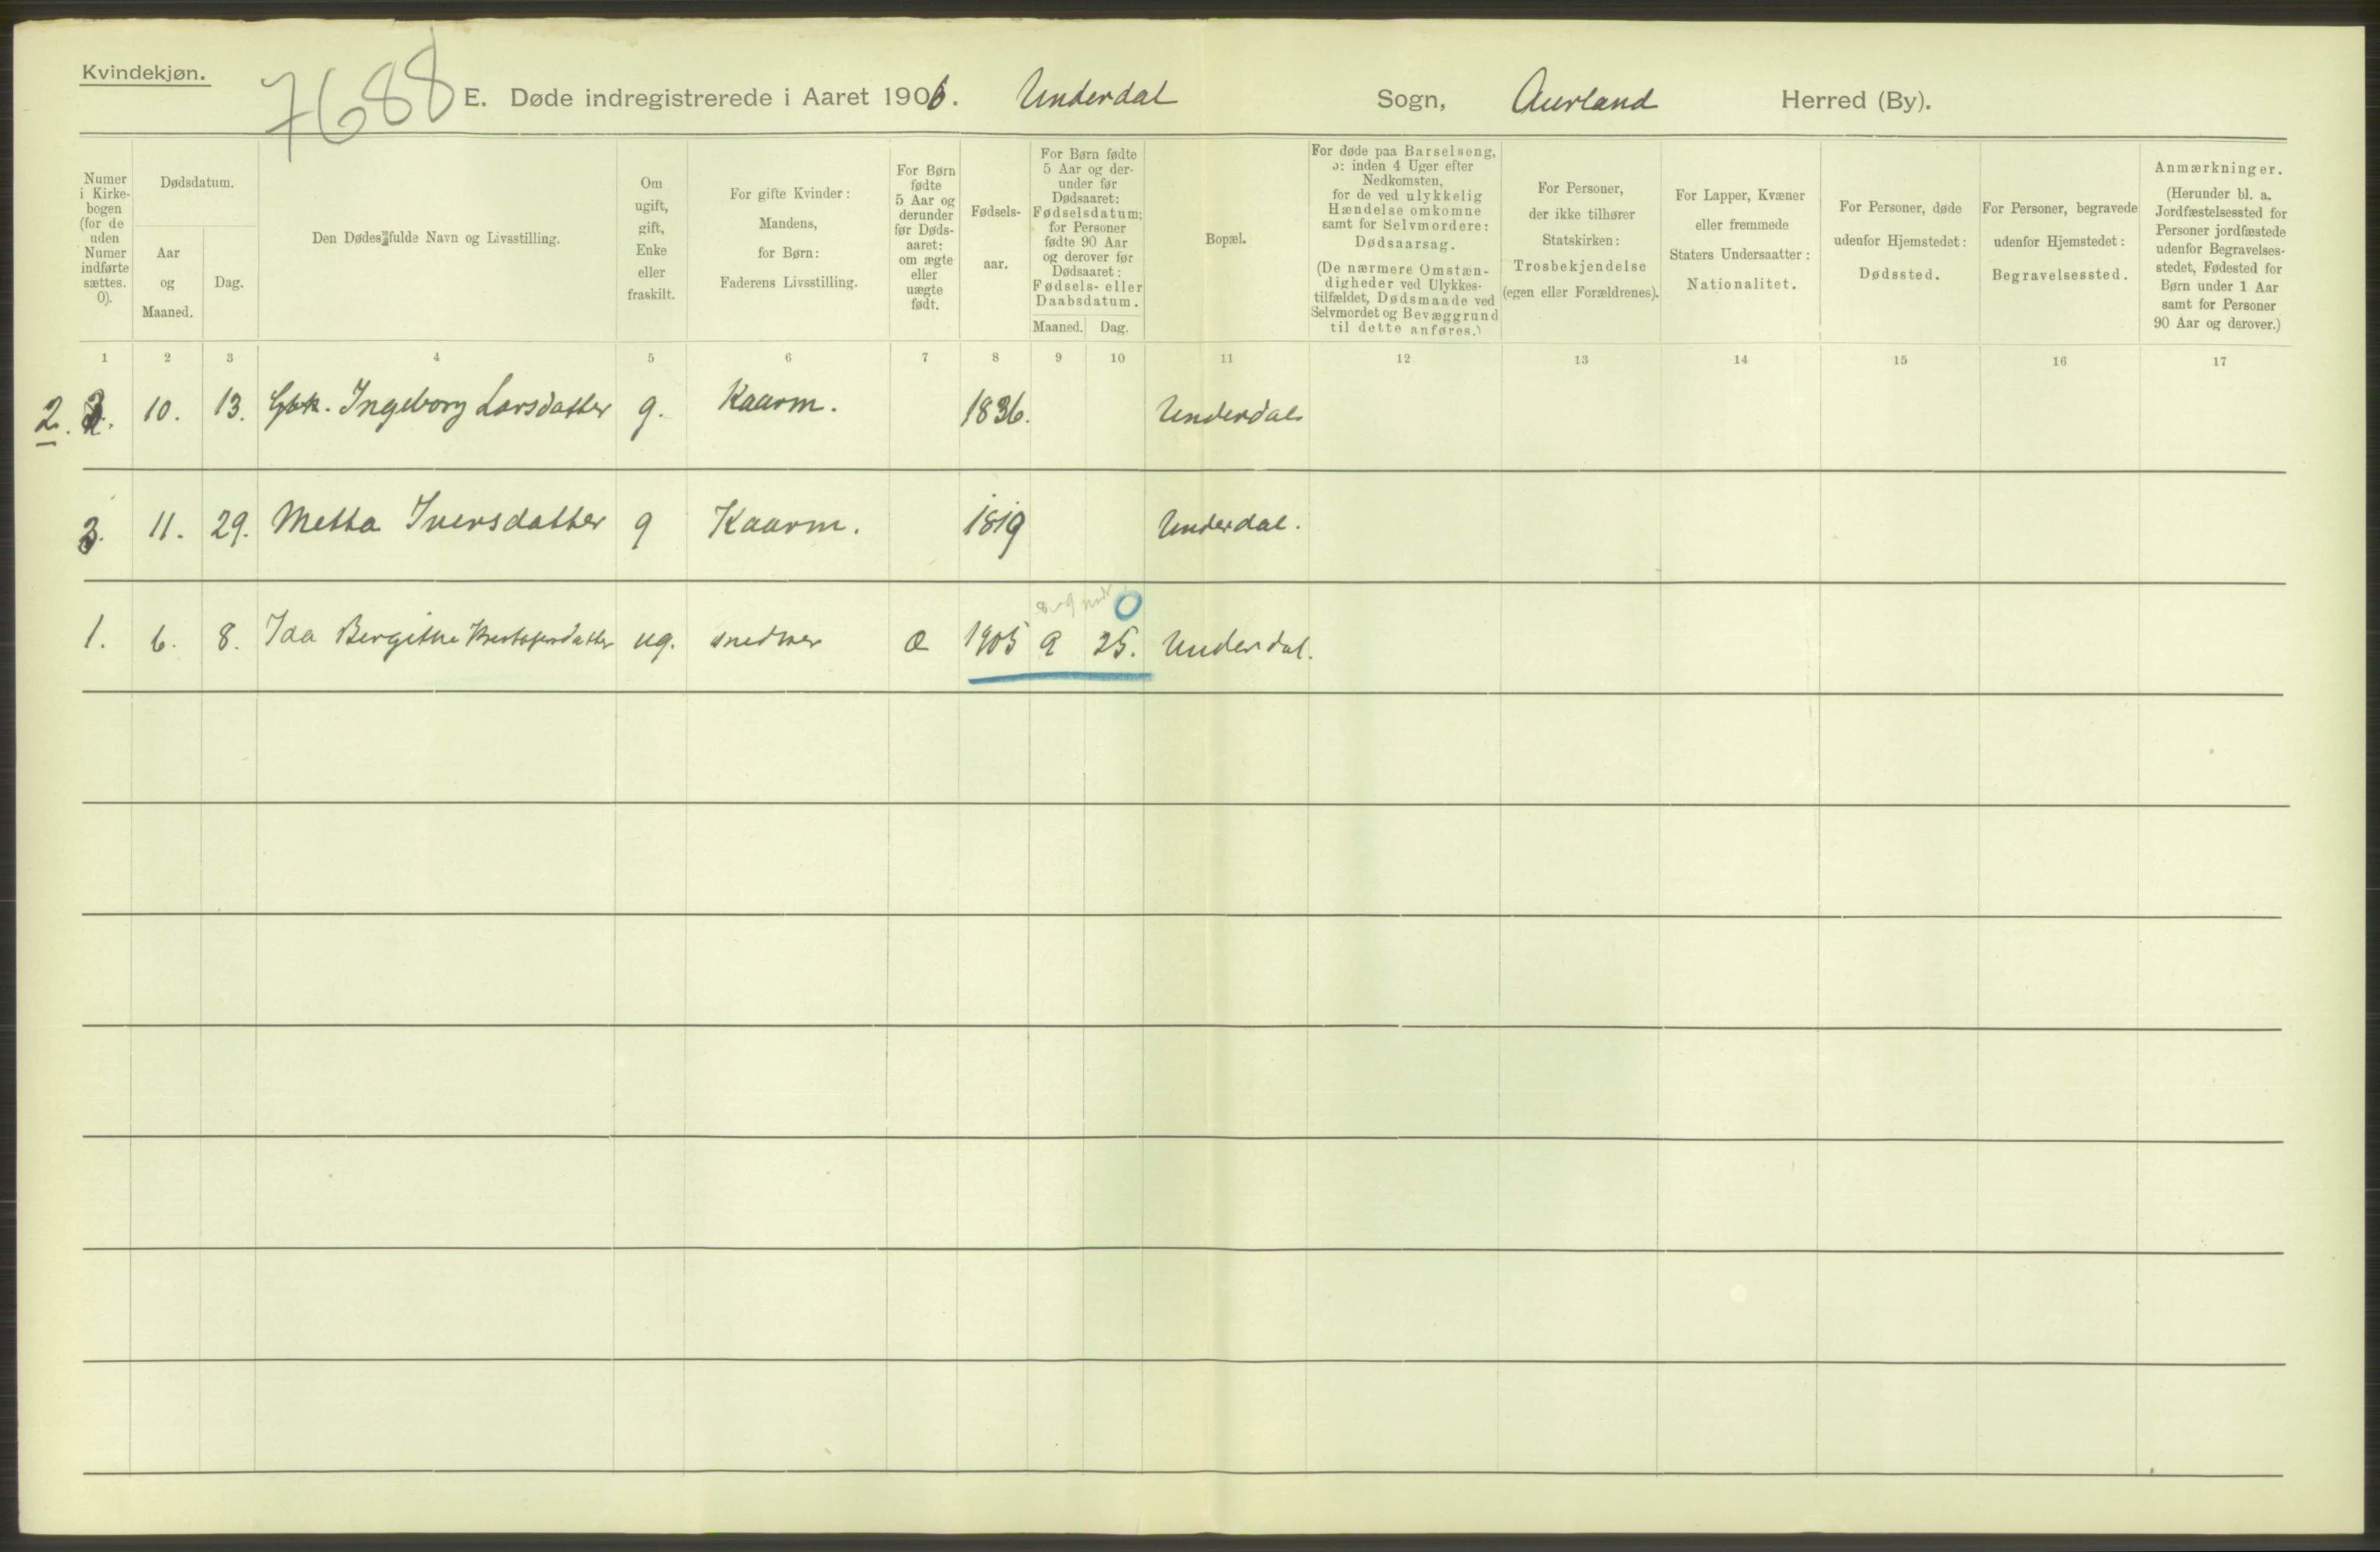 Kvindekjøn.
7688
E. Døde indregistrerede i Aaret 1906. Underdal Sogn, Aurland Herred (By).
Numer i Kirke- bogen (for de uden Numer indførte sættes. 0).
Dødsdatum.
Aar og Maaned.
Dag.
Den Dødes fulde Navn og Livsstilling.
Om ugift, gift, Enke eller fraskilt.
For gifte Kvinder: Mandens, for Børn: Faderens Livsstilling.
For Børn fødte 5 Aar og derunder før Døds- aaret: om ægte eller uægte født.
Fødsels- aar.
For Børn fødte 5 Aar og der- under før Dødsaaret: Fødselsdatum; for Personer fødte 90 Aar og derover før Dødsaaret: Fødsels- eller Daabsdatum.
Maaned. Dag.
Bopæl.
For døde paa Barselseng, ɔ: inden 4 Uger efter Nedkomsten, for de ved ulykkelig Hændelse omkomne samt for Selvmordere: Dødsaarsag. (De nærmere Omstæn- digheder ved Ulykkes- tilfældet, Dødsmaade ved Selvmordet og Bevæggrund til dette anføres.)
For Personer, der ikke tilhører Statskirken: Trosbekjendelse (egen eller Forældrenes).
For Lapper, Kvæner eller fremmede Staters Undersaatter: Nationalitet.
For Personer, døde udenfor Hjemstedet: Dødssted.
For Personer, begravede udenfor Hjemstedet: Begravelsessted.
Anmærkninger. (Herunder bl. a. Jordfæstelsessted for Personer jordfæstede udenfor Begravelses- stedet, Fødested for Børn under 1 Aar samt for Personer 90 Aar og derover.)
1 2 3 4 5 6 7 8 9 10 11 12 13 14 15 16 17
2. 10. 13. Gbk. Ingeborg Larsdatter g. Kaarm. 1836. Underdal
3. 11. 29. Metta Iversdatter g Kaarm. 1819 Underdal.
8-9 mdr 0
1. 6. 8. Ida Bergithe Kristofersdatter ug. snedker æ 1905 9 25. Underdal.